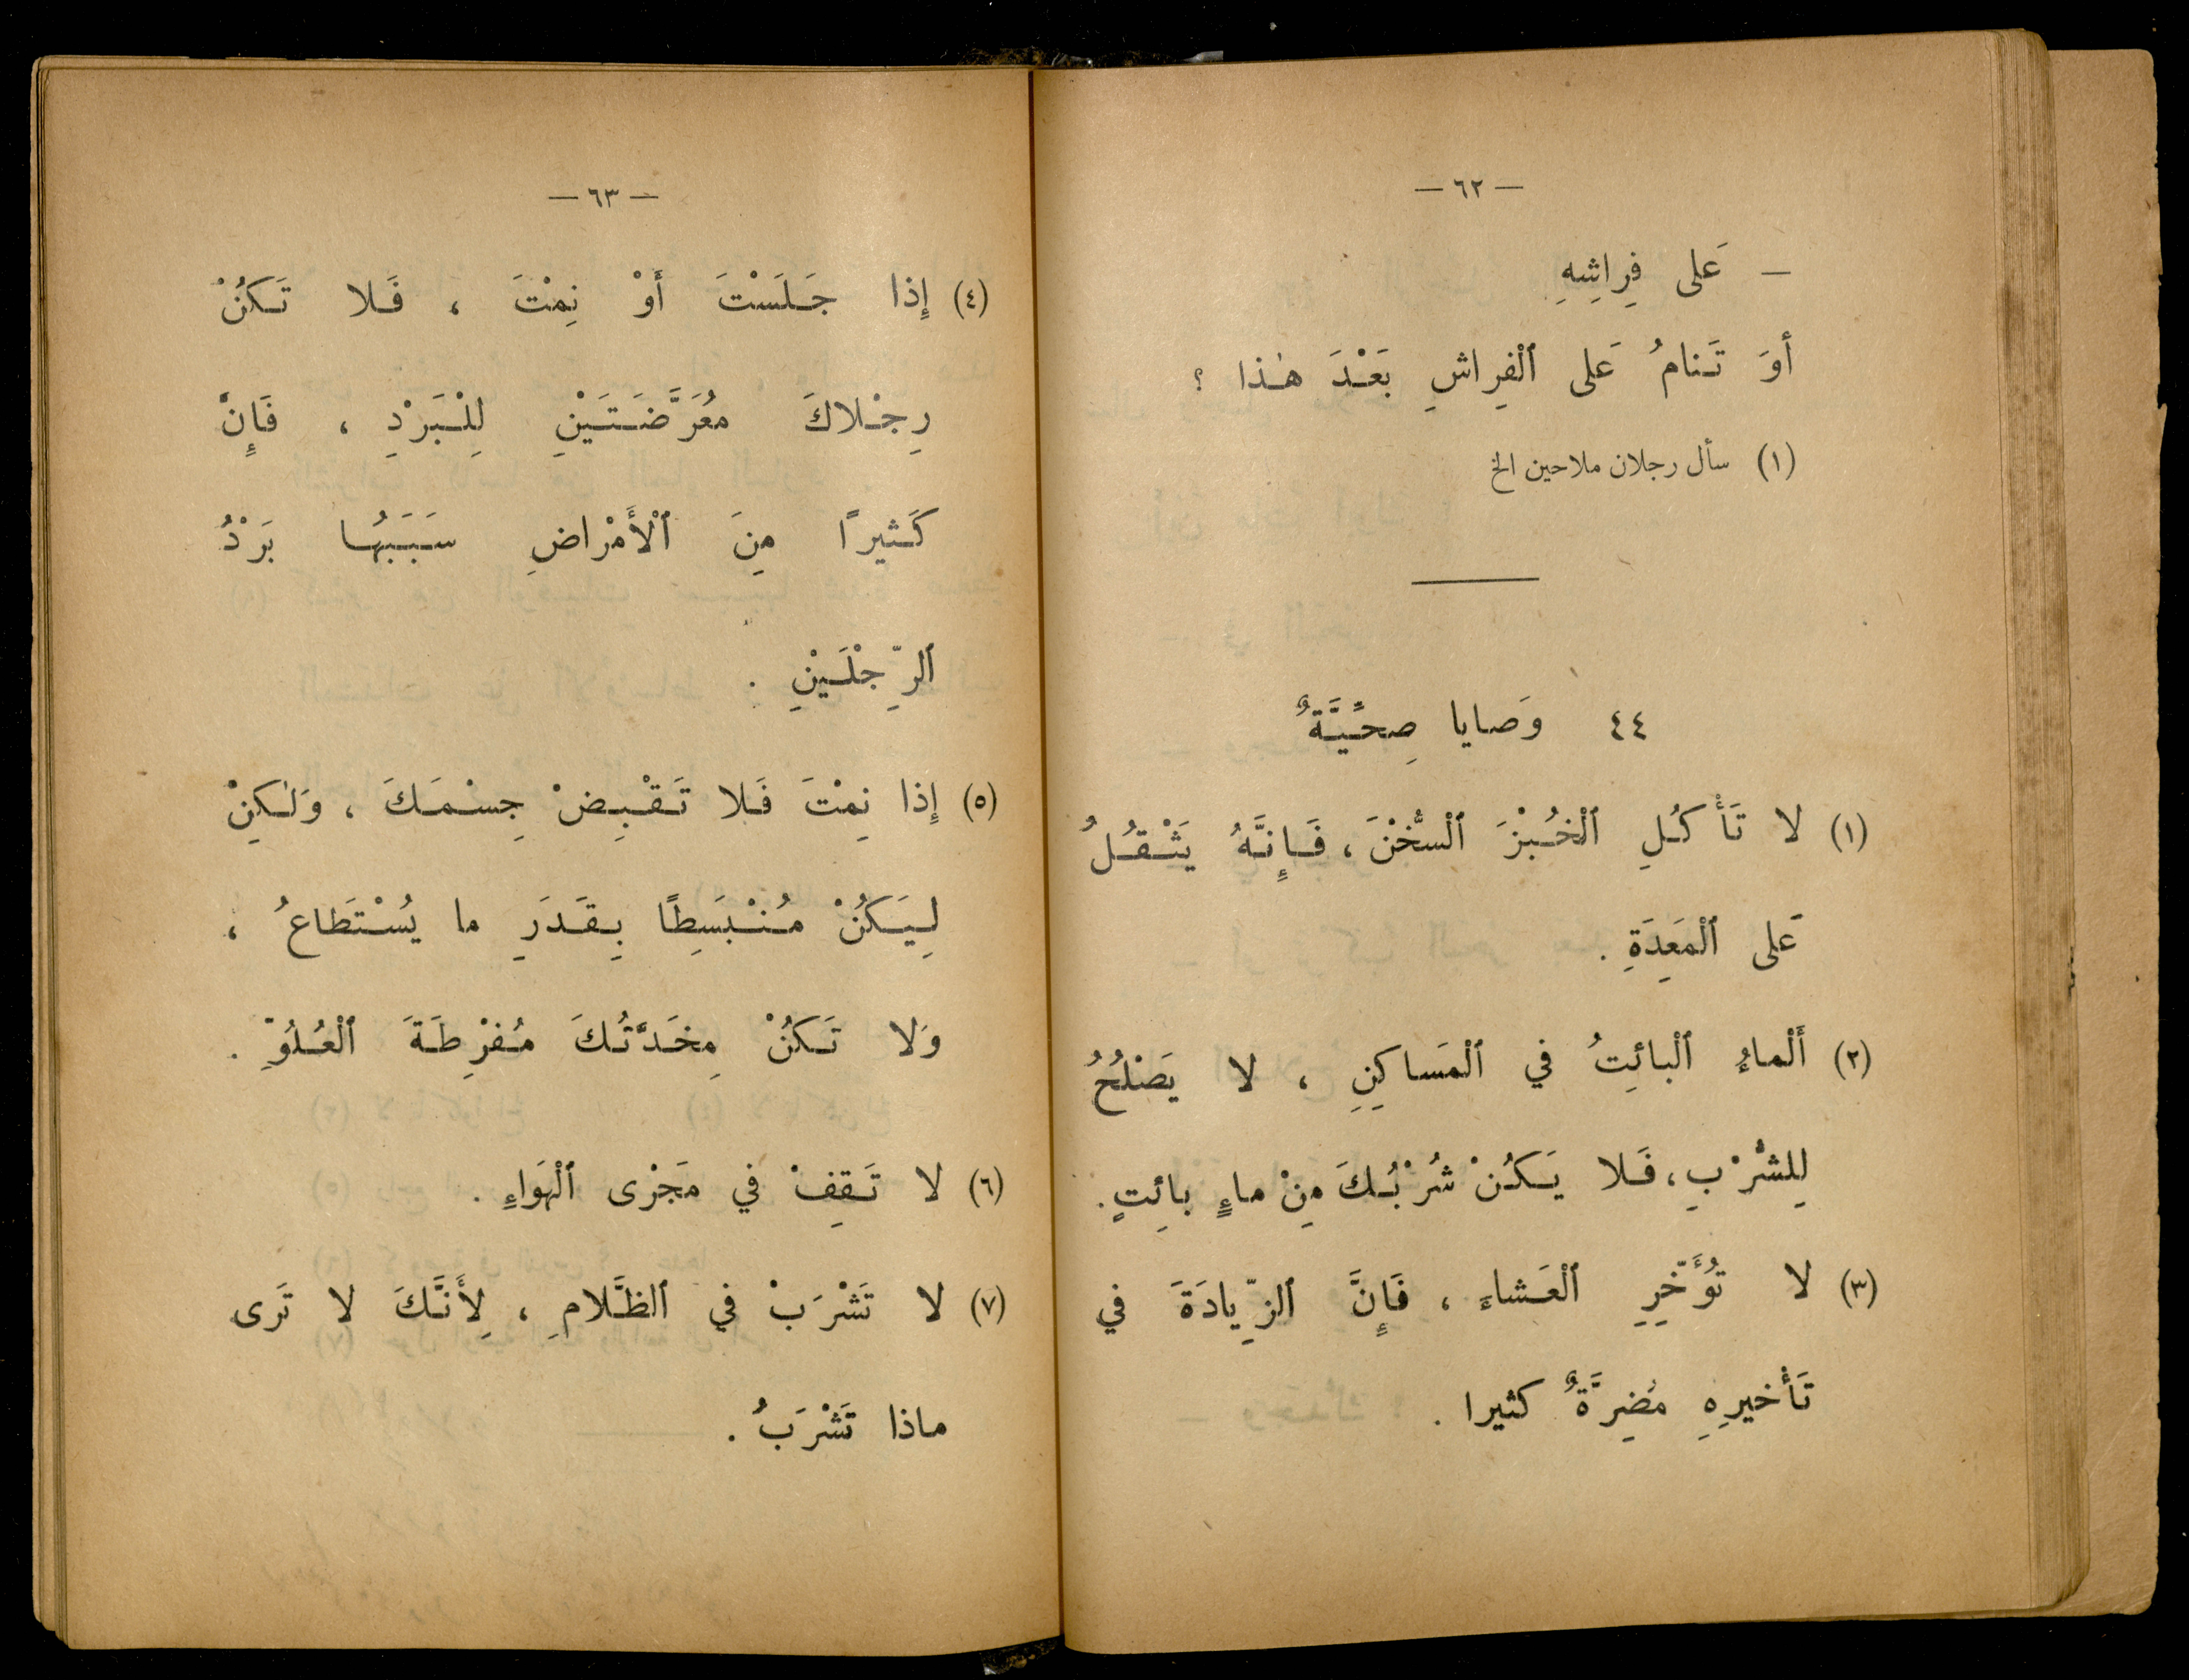 — ٦٢ —
— عَلى فِراشِهِ
أوَ تَنامُ عَلى ٱلْفِراشِ بَعْدَ هٰذا ؟
(١) سأل رجلان ملاحين الخ
٤٤ وَصايا صِحِّيَّةٌ
(١) لا تَأْكُلِ ٱلْخُبْزَ ٱلسُّخْنَ ، فَإِنَّهُ يَثْقُلُ
عَلى ٱلْمَعِدَةِ .
(٢) أَلْماءُ ٱلْبائِتُ في ٱلْمَساكِنِ ، لا يَصْلُحُ
لِلشُّرْبِ ، فَلا يَكُنْ شُرْبُكَ مِنْ ماءٍ بائِتٍ .
(٣) لا تُؤَخِّرِ ٱلْعَشاءَ ، فَإِنَّ ٱلزِّيادَةَ في
تَأْخيرِهِ مُضِرَّةٌ كثيرا .
— ٦٣ —
(٤) إِذا جَلَسْتَ أَوْ نِمْتَ ، فَلا تَكُنْ
رِجْلاكَ مُعَرَّضَتَيْنِ لِلْبَرْدِ ، فَإِنَّ
كَثيرًا مِنَ ٱلْأَمْراضِ سَبَبُها بَرْدُ
ٱلرِّجْلَيْنِ .
(٥) إِذا نِمْتَ فَلا تَقْبِضْ جِسْمَكَ ، وَلٰكِنْ
لِيَكُنْ مُنْبَسِطًا بِقَدَرِ ما يُسْتَطاعُ ،
وَلا تَكُنْ مِخَدَّتُكَ مُفْرِطَةَ ٱلْعُلُوِّ .
(٦) لا تَقِفْ في مَجْرى ٱلْهَواءِ .
(٧) لا تَشْرَبْ في ٱلظَّلامِ ، لِأَنَّكَ لا تَرى
ماذا تَشْرَبُ .